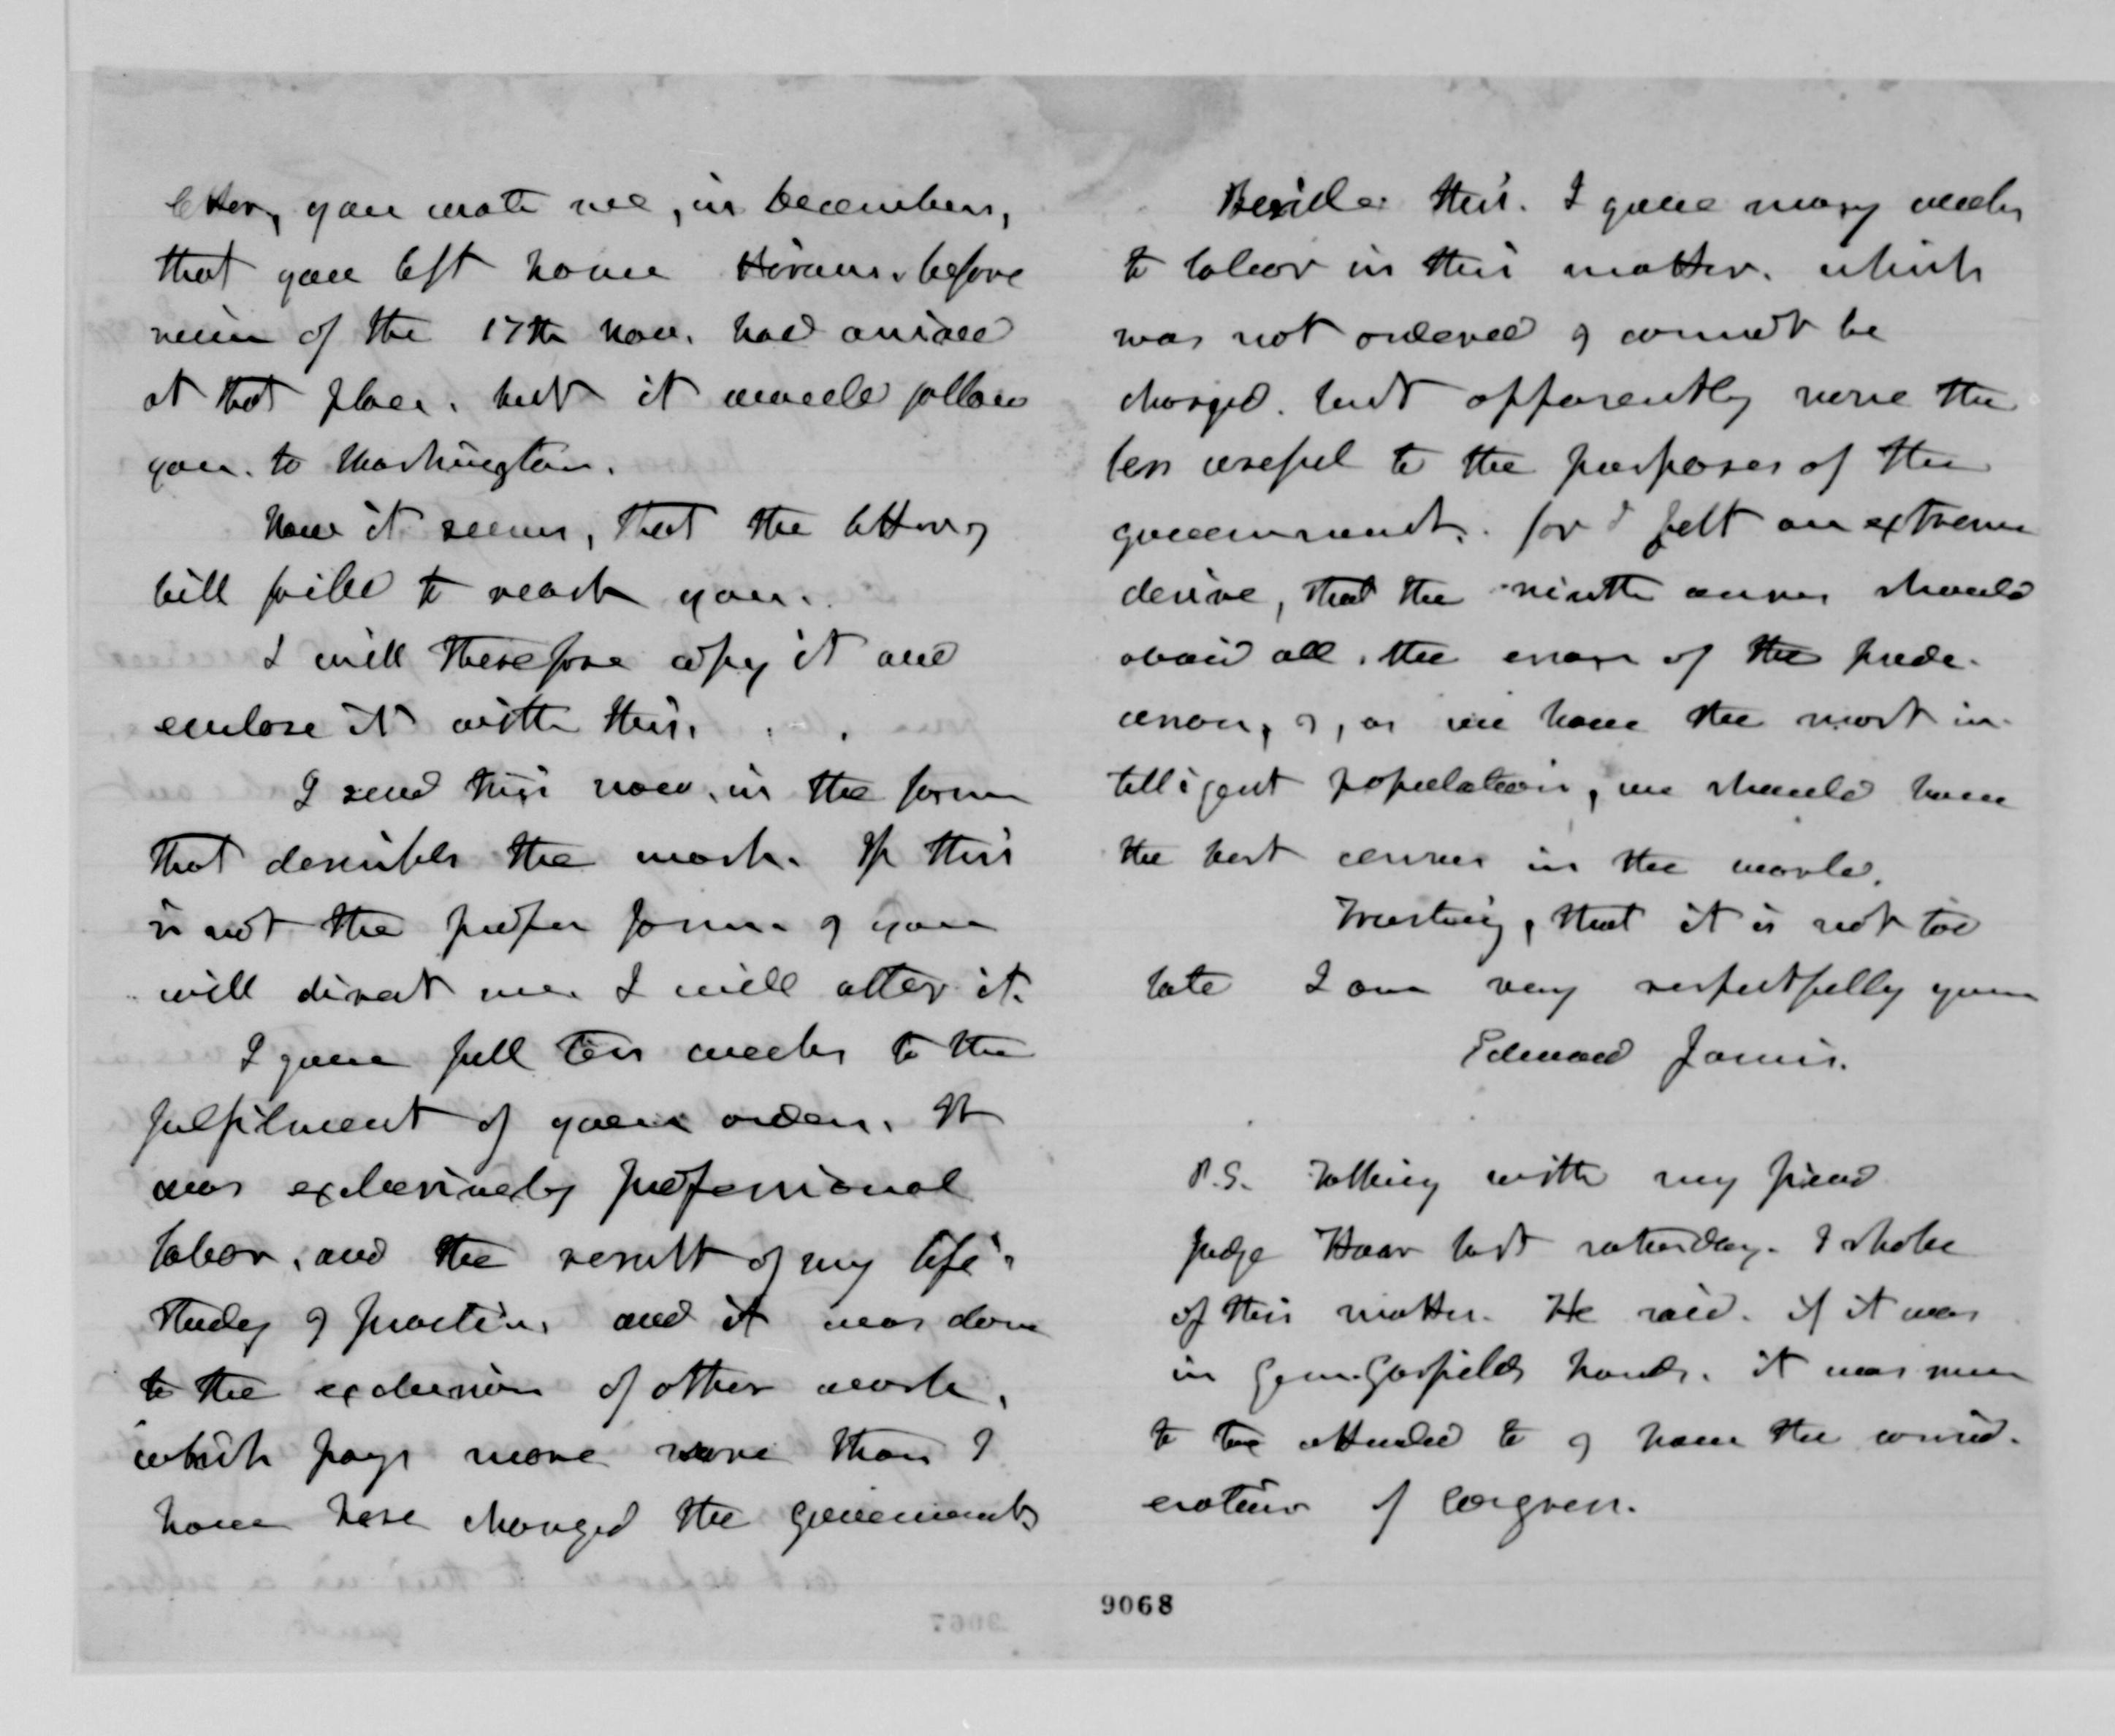 letter, you wrote me, in December,
that you left home Hiram, before
mine of the 17th Nov. had arrived
at that place, but it would follow
you to Washington.
Now it seems, that the letter &
bill failed to reach you.
I will therefore copy it and
enclose it with this.
I send this now, in the form
that describes the work. If this
is not the proper form & you
will direct me I will alter it.
I gave full ten weeks to the
fulfilment of your order. It
was exclusively professional
labor, and the result of my life's
study & practice, and it was done
to the exclusion of other work,
which pays more than I
have here charged the government
Beside this. I gave many weeks
to labor in this matter, which
was not ordered & cannot be
charged. but apparently none the
less useful to the purposes of the
government. for I felt an extreme
desire, that the ninth census should
avoid all the errors of the prede-
cessors, &, as we have the most in-
telligent population, we should have
the best census in the world.
Trusting, that it is not too
late I am very respectfully yours
Edward Jarvis.
P.S. Talking with my friend
Judge Hoar last saturday. I spoke
of this matter. He said. if it was
in Gen. Garfields hands. it was sure
to be attended to & have the consid-
eration of Congress.
9068
9067